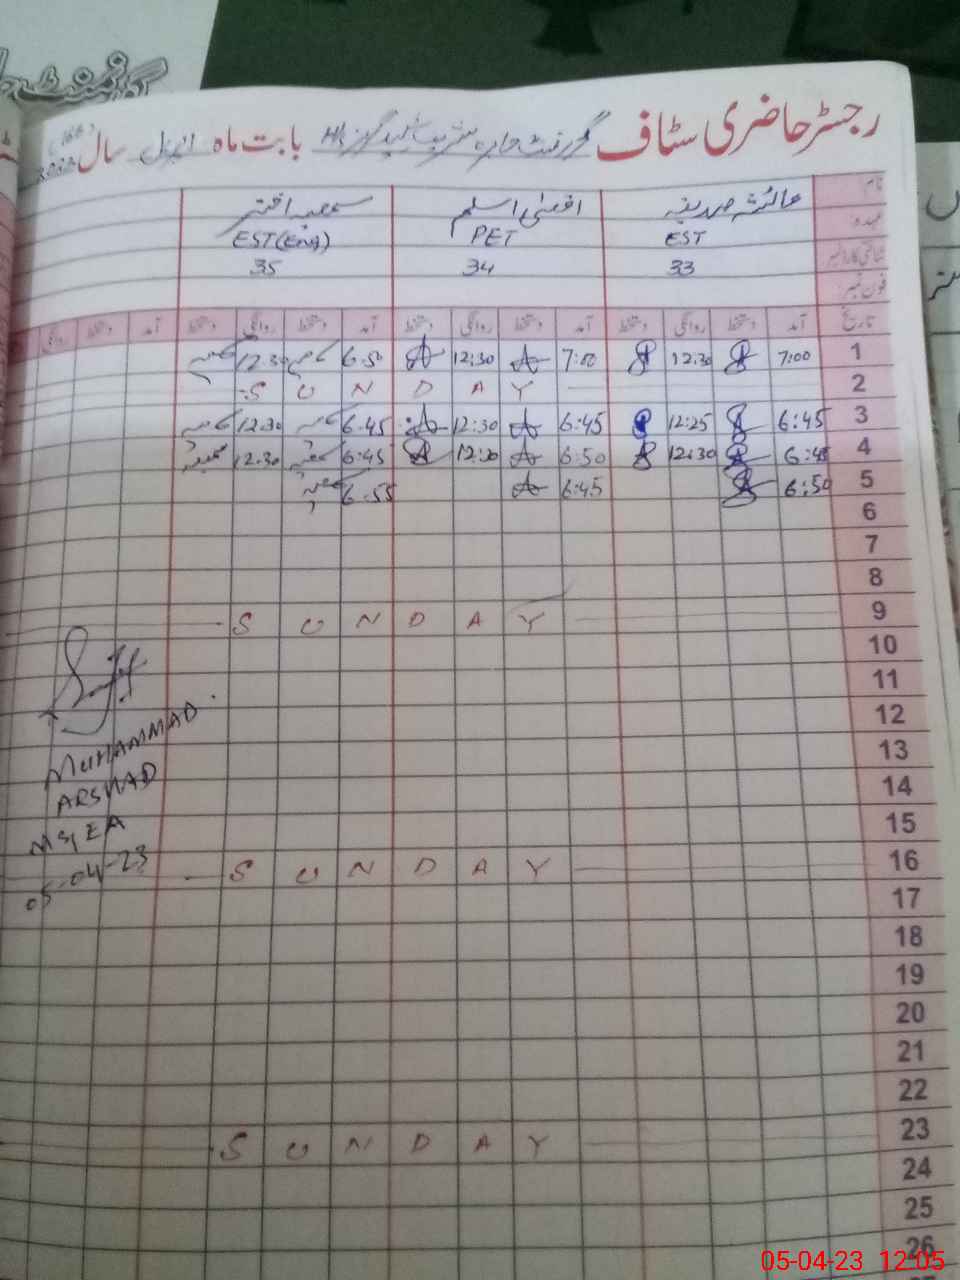 گورنمنٹ
رجسٹر حاضری سٹاف گورنمنٹ بابت ماہ اپریل سال
نام عائشہ صدیقہ اقصیٰ اسلم سمعیہ اختر
عہدہ EST PET EST(Eng)
شناختی کارڈ نمبر 33 34 35
فون نمبر
تاریخ آمد دستخط روانگی دستخط آمد دستخط روانگی دستخط آمد دستخط روانگی دستخط آمد دستخط روانگی
1 7:00 12:30 7:00 12:30 6:50 12:30
2 S U N D A Y
3 6:45 12:25 6:45 12:30 6:45 12:30
4 6:45 12:30 6:50 12:30 6:45 12:30
5 6:50 6:45 6:55
6
7
8
9 S U N D A Y
10
11
12
13
14
15
16 S U N D A Y
17
18
19
20
21
22
23 S U N D A Y
24
25
26
MUHAMMAD
ARSHAD
MEA
05-04-23
05-04-23 12:05